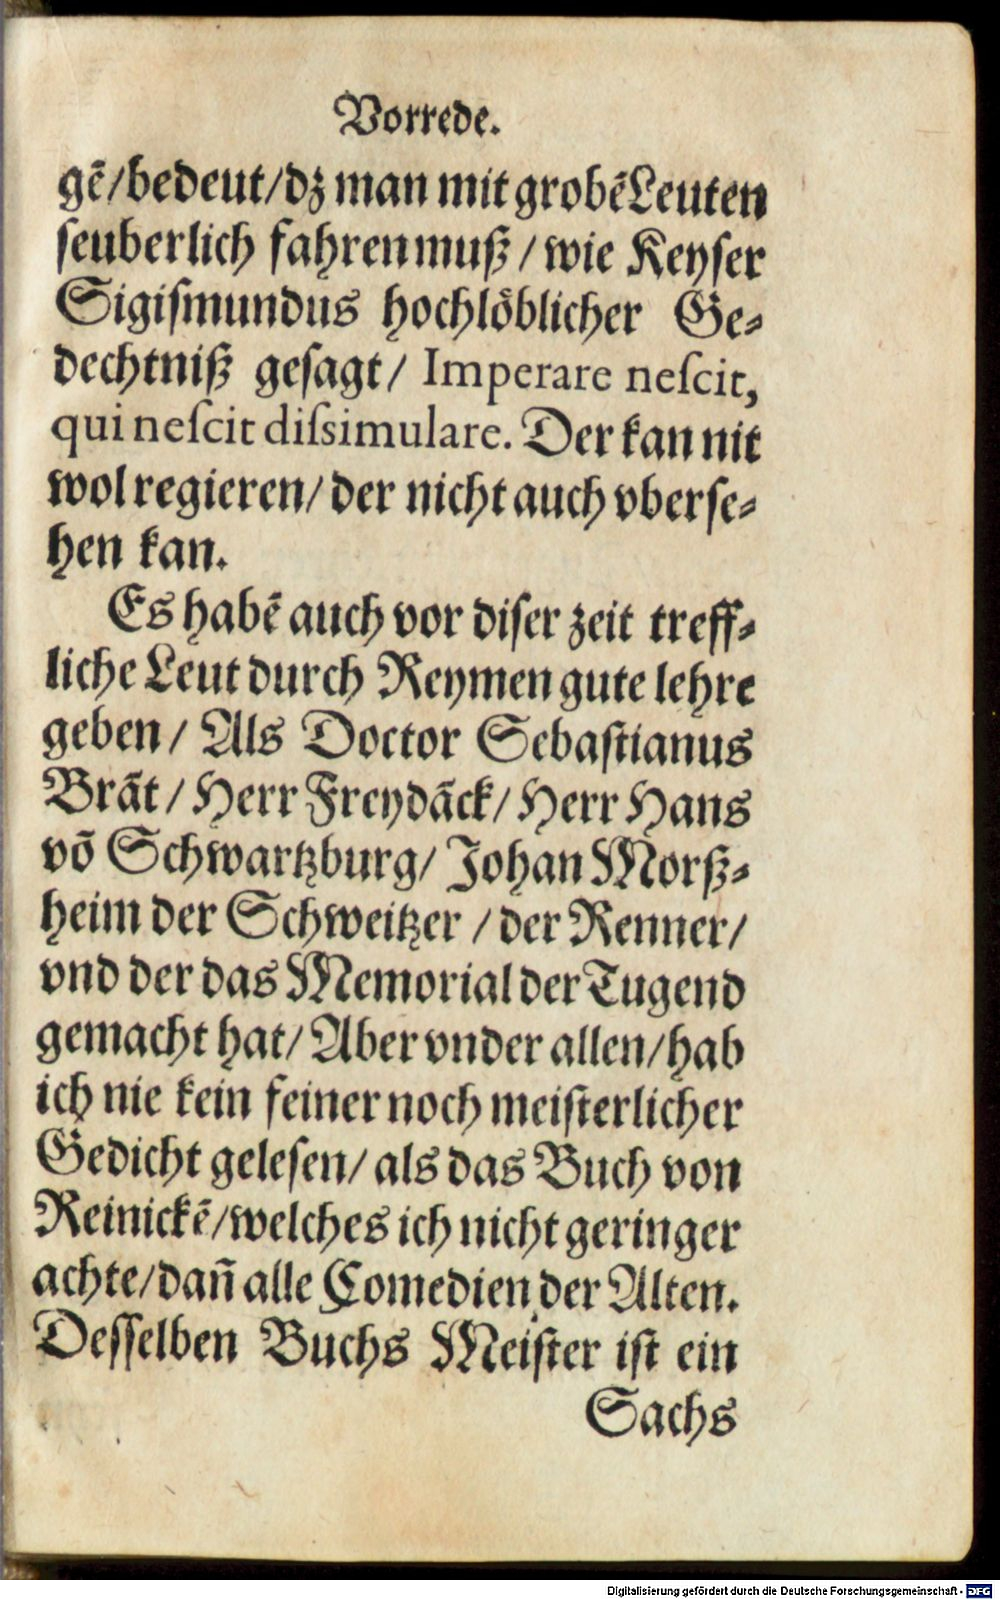 Vorrede.
gē/bedeut/dz man mit grobē Leuten
seuberlich fahren muß / wie Keyser
Sigiſmundus hochlöblicher Ge-
dechtniß geſagt / Imperare neſcit,
qui neſcit diſsimulare. Der kan nit
wol regieren / der nicht auch vberſe-
hen kan.
Es habē auch vor diſer zeit treff-
liche Leut durch Reymen gute lehre
geben / Als Doctor Sebaſtianus
Brāt / Herr Freydāck / Herr Hans
vō Schwartzburg / Johan Morß-
heim der Schweitzer / der Renner /
vnd der das Memorial der Tugend
gemacht hat / Aber vnder allen / hab
ich nie kein feiner noch meiſterlicher
Gedicht geleſen / als das Buch von
Reinickē / welches ich nicht geringer
achte / dañ alle Comedien der Alten.
Deſſelben Buchs Meiſter iſt ein
Sachs
Digitalisierung gefördert durch die Deutsche Forschungsgemeinschaft - DFG